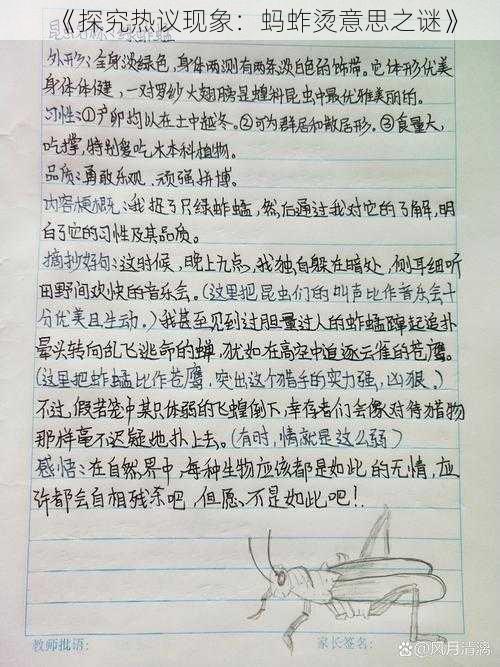 《探究热议现象：蚂蚱烫意思之谜》
外形：全身淡绿色，身体两测有两条淡白色的饰带。它体形优美
身体体健，一对罗纱大翅膀是蝗科昆虫中最优雅美丽的。
习性：①产卵均以在土中越冬。②可为群居和散居形。③食量大，
吃撑，特别爱吃木本科植物。
品质：勇敢乐观、顽强拼博。
内容梗概：我捉了只绿蚱蜢，然后通过我对它的了解，明
白了它的习性及其品质。
摘抄好句：这时候，晚上九点，我独自躲在暗处，侧耳细听
田野间欢快的音乐会。（这里把昆虫们的叫声比作音乐会十
分优美且生动。）我甚至见到过胆量过人的蚱蜢蹿起追扑
晕头转向乱飞逃命的蝉，犹如在高空中追逐云雀的苍鹰。
（这里把蚱蜢比作苍鹰，突出这个猎手的实力强，凶狠。）
不过，假若笼中某只体弱的飞蝗倒下，幸存者们会像对待猎物
那样毫不迟疑地扑上去。（有时，情就是这么弱）
感悟：在自然界中，每种生物应该都是如此的无情，应
许都会自相残杀吧，但愿不是如此吧！
教师批语：
家长签名：
@风月清漓